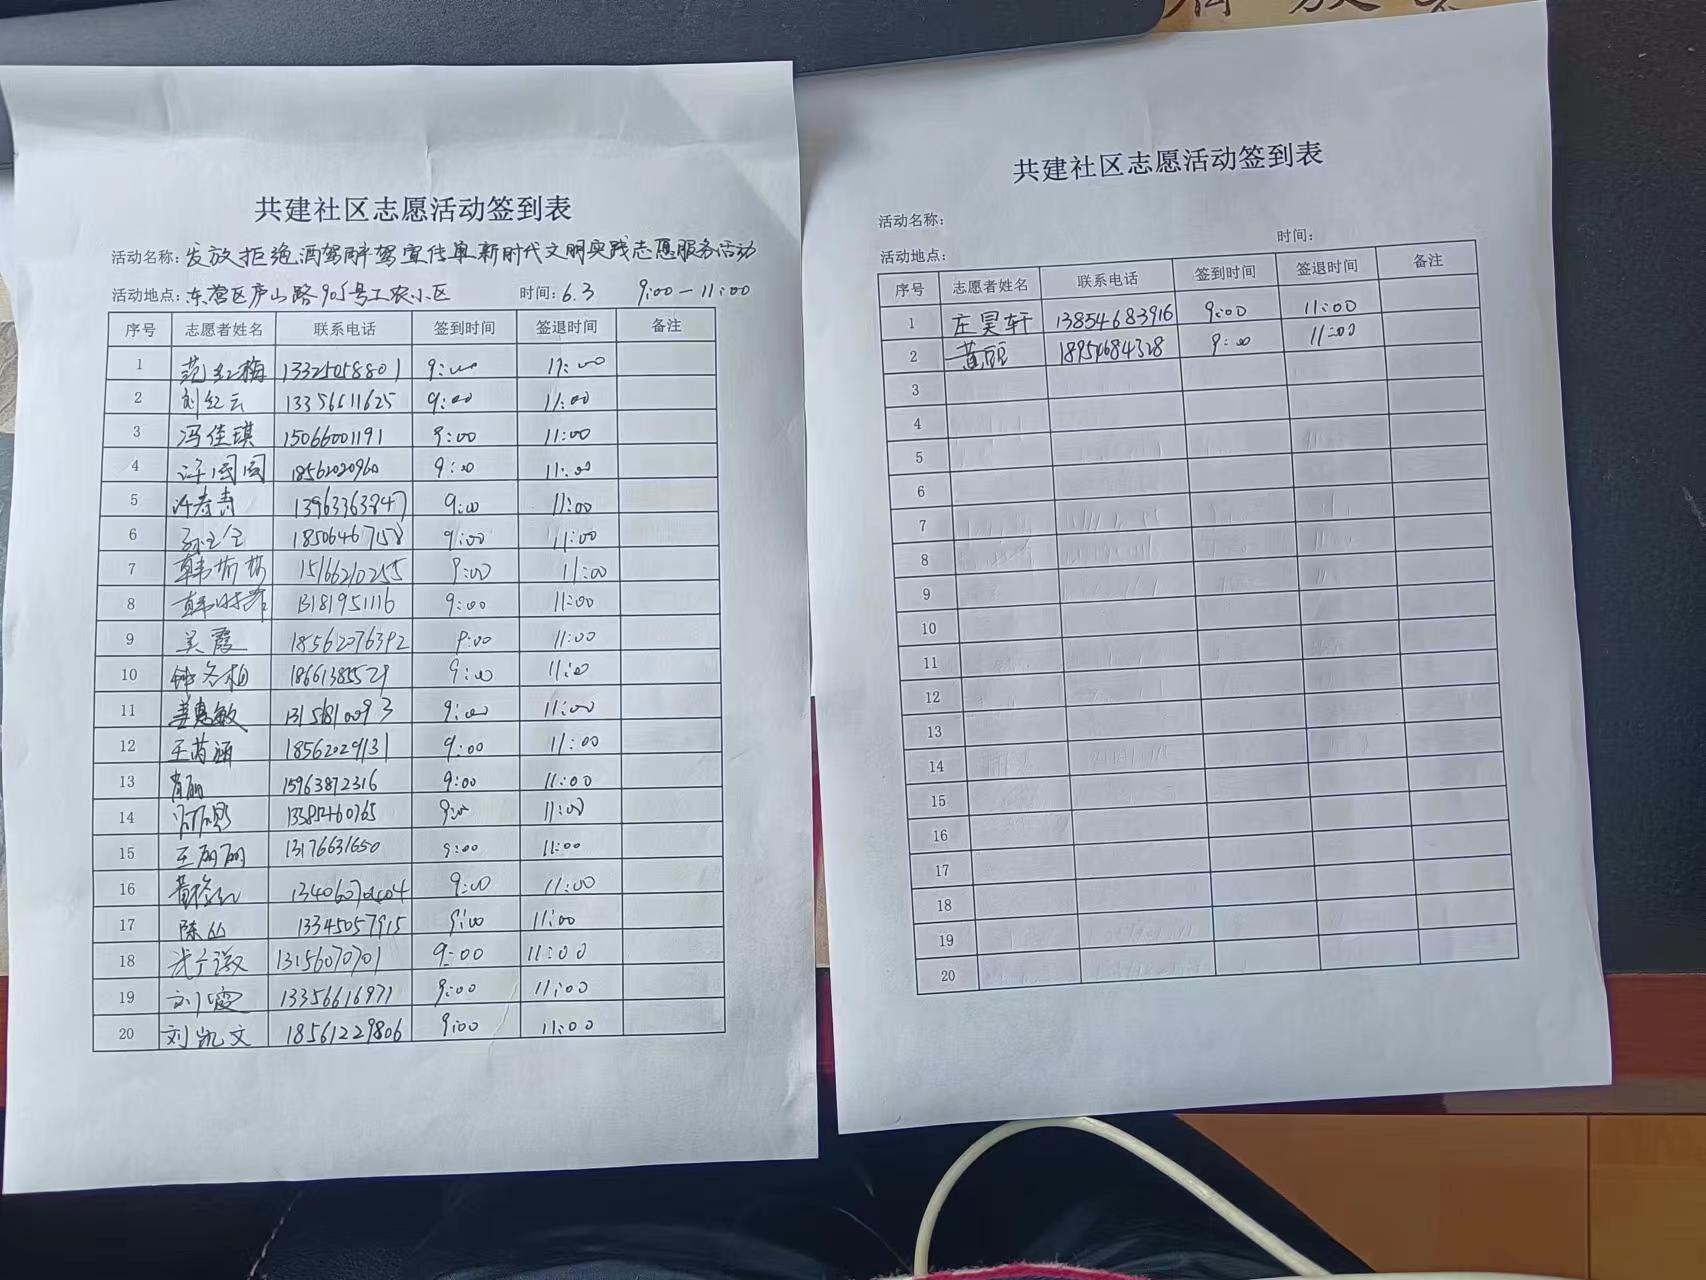 共建社区志愿活动签到表
活动名称: 发放拒绝酒驾醉驾宣传单新时代文明实践志愿服务活动
活动地点: 东营区庐山路905号工农小区 时间: 6.3 9:00-11:00
序号 志愿者姓名 联系电话 签到时间 签退时间 备注
1 范红梅 13325058801 9:00 11:00
2 刘红云 13356611625 9:00 11:00
3 冯佳琪 15066001191 9:00 11:00
4 许园园 18562020960 9:00 11:00
5 许春青 13963363847 9:00 11:00
6 18506467158 9:00 11:00
7 15166210255 9:00 11:00
8 13181951116 9:00 11:00
9 吴霞 18562076392 9:00 11:00
10 18661385529 9:00 11:00
11 姜惠敏 13156810093 9:00 11:00
12 王芮涵 18562029131 9:00 11:00
13 肖丽 15963872316 9:00 11:00
14 13385460765 9:00 11:00
15 王丽丽 13176631650 9:00 11:00
16 9:00 11:00
17 陈丛 13345057915 9:00 11:00
18 13156070701 9:00 11:00
19 刘霞 13356616971 9:00 11:00
20 刘凯文 18561229806 9:00 11:00
共建社区志愿活动签到表
活动名称:
活动地点: 时间:
序号 志愿者姓名 联系电话 签到时间 签退时间 备注
1 庄昊轩 13854683916 9:00 11:00
2 黄丽 18954684328 9:00 11:00
3
4
5
6
7
8
9
10
11
12
13
14
15
16
17
18
19
20